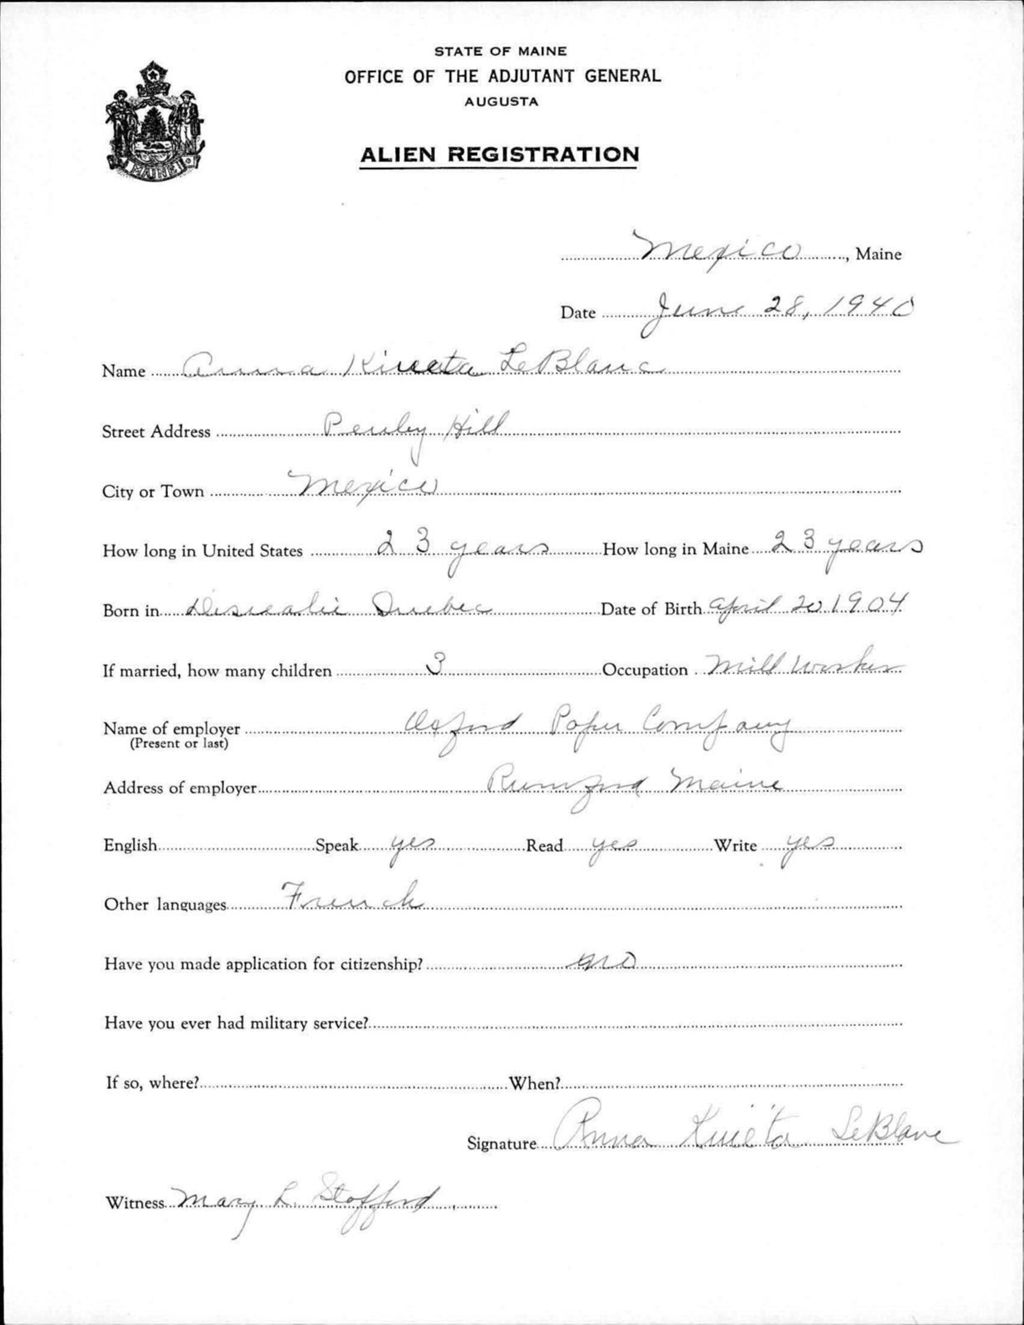 STATE OF MAINE
OFFICE OF THE ADJUTANT GENERAL
AUGUSTA
ALIEN REGISTRATION
MAINE
Mexico, Maine
Date June 28, 1940
Name Anna LeBlanc
Street Address Hill
City or Town Mexico
How long in United States 23 years How long in Maine 23 years
Born in Quebec Date of Birth April 20 1904
If married, how many children 3 Occupation Mill Worker
Name of employer Oxford Paper Company
(Present or last)
Address of employer Rumford Maine
English Speak yes Read yes Write yes
Other languages French
Have you made application for citizenship? no
Have you ever had military service?
If so, where? When?
Signature Anna LeBlanc
Witness Mary L. Stafford